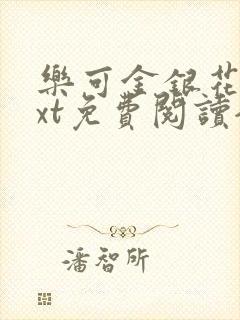 樂可金銀花
xt免費閱讀
潘智所